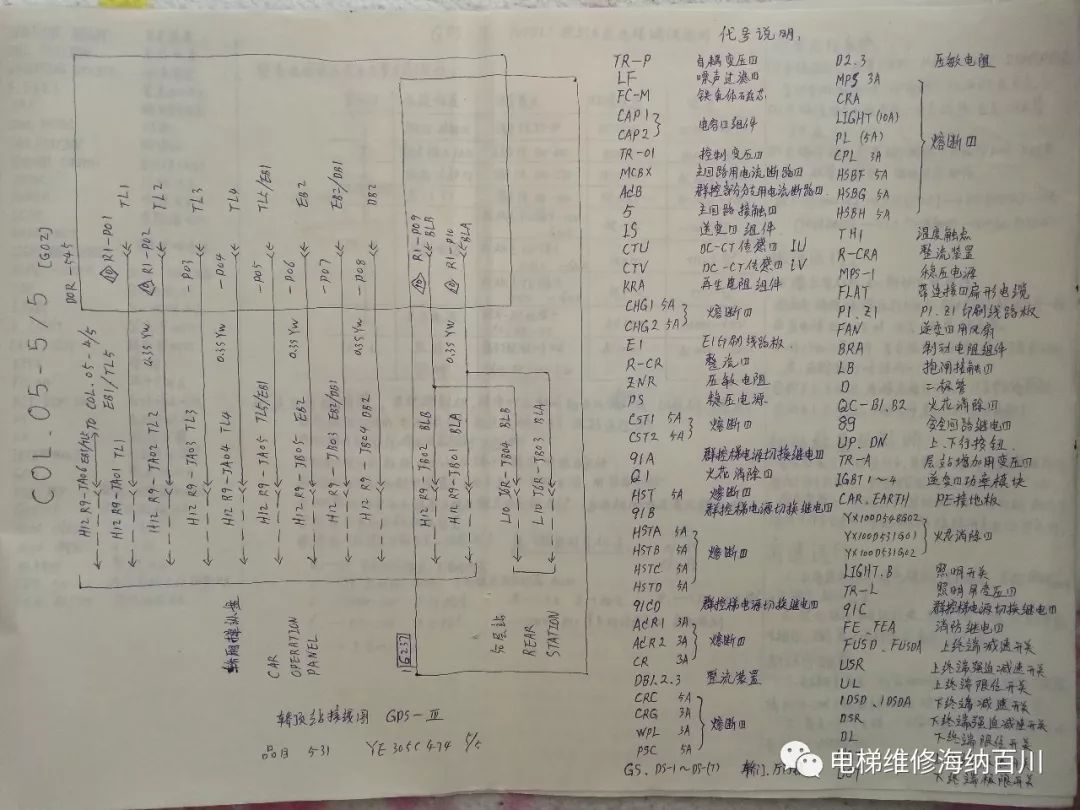 COL.05-5/5 [G02]
DOR-545
R1-P01 TL1
R1-P02 TL2
-P03 TL3
-P04 TL4
-P05 TL5/EB1
-P06 EB2
-P07 EB2/DB1
-P08 DB2
R1-P09 BLB
R1-P10 BLA
TO COL.05-4/5
EB1/TL5
0.35 YW
0.35 YW
0.35 YW
0.35 YW
0.35 YW
H12 R9-JA01 TL1
H12 R9-JA02 TL2
H12 R9-JA03 TL3
H12 R9-JA04 TL4
H12 R9-JA05 TL5/EB1
H12 R9-JB05 EB2
H12 R9-JB03 EB2/DB1
H12 R9-JB04 DB2
H12 R9-JB02 BLB
H12 R9-JB01 BLA
L10 JGR-JB04 BLB
L10 JGR-JB03 BLA
CAR
OPERATION
PANEL
G237
REAR
STATION
轿顶站接线图 GPS-III
品目 531 YE305C474 5/5
代号说明:
TR-P 自耦变压口
LF 噪声过滤口
FC-M 铁氧体磁芯
CAP1
CAP2 电容口组件
TR-01 控制变压口
MCBX 主回路用电流断路口
AdB 群控部分支用电流断路口
5 主回路接触口
IS 逆变口组件
CTU DC-CT传感口 IU
CTV DC-CT传感口 IV
KRA 再生电阻组件
CHG1 5A
CHG2 5A 熔断口
E1 E1印刷线路板
R-CR 整流口
ZNR 压敏电阻
PS 稳压电源
CST1 5A
CST2 5A 熔断口
91A 群控梯电源切换继电口
Q1 火花消除口
HST 5A 熔断口
91B 群控梯电源切换继电口
HSTA 5A
HSTB 5A
HSTC 5A
HSTD 5A
熔断口
91CD 群控梯电源切换继电口
AdR1 3A
AdR2 3A
CR 3A
熔断口
DB1.2.3 整流装置
CRC 5A
CRG 3A
WPL 3A
PSC 5A
熔断口
GS、DS-1～DS-(T) 轿门、厅
D2.3 压敏电阻
MPS 3A
CRA
LIGHT(10A)
PL (5A)
CPL 3A
HSBF 5A
HSBG 5A
HSBH 5A
熔断口
TH1 温度触点
R-CRA 整流装置
MPS-1 稳压电源
FLAT 带连接口扁形电缆
P1、Z1 P1、Z1印刷线路板
FAN 逆变口用风扇
BRA 制动电阻组件
LB 抱闸接触口
D 二极管
QC-B1、B2 火花消除口
89 安全回路继电口
UP、DN 上、下行按钮
TR-A 层站增加用变压口
IGBT1～4 逆变口功率模块
CAR、EARTH PE接地板
YX100D548G02
YX100D531G01
YX100D531G02
火花消除口
LIGHT.B 照明开关
TR-L 照明用变压口
91C 群控梯电源切换继电口
FE、FEA 消防继电口
FUSD、FUSDA 上终端减速开关
USR 上终端强迫减速开关
UL 上终端限位开关
IDSD、IDSDA 下终端减速开关
DSR 下终端强迫减速开关
DL 下终端限位开关
下终端极限开关
电梯维修海纳百川